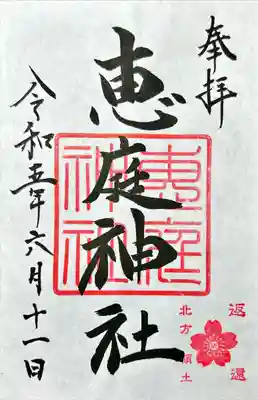 奉拝
恵庭神社
恵庭神社
令和五年六月十一日
返還
北方領土